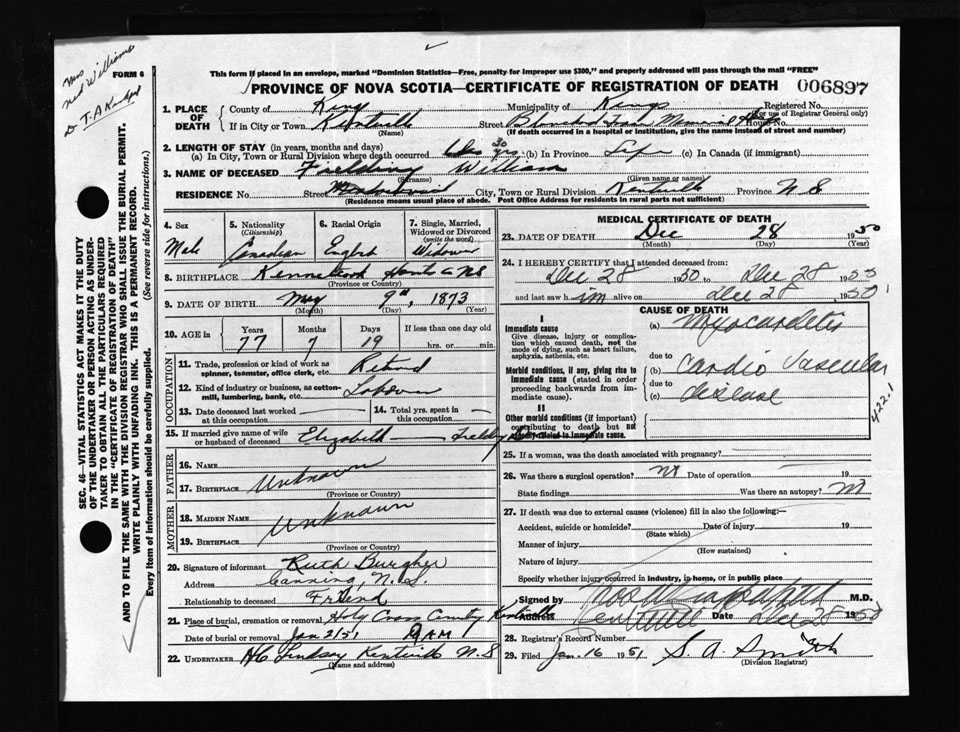 Mrs
Ned Williams
FORM 6
This form if placed in an envelope, marked "Dominion Statistics—Free, penalty for improper use $300," and properly addressed will pass through the mail "FREE"
PROVINCE OF NOVA SCOTIA—CERTIFICATE OF REGISTRATION OF DEATH 006897
1. PLACE OF DEATH
County of Kings Municipality of Kings Registered No.
(For use of Registrar General only)
If in City or Town Kentville Street House No.
(Name) (If death occurred in a hospital or institution, give the name instead of street and number)
2. LENGTH OF STAY (in years, months and days)
(a) In City, Town or Rural Division where death occurred 30 yrs. (b) In Province Life (c) In Canada (if immigrant)
3. NAME OF DECEASED Fielding William
(Surname) (Given name or names)
RESIDENCE No. Street City, Town or Rural Division Kentville Province N S
(Residence means usual place of abode. Post Office Address for residents in rural parts not sufficient)
4. Sex
Male
5. Nationality
(Citizenship)
Canadian
6. Racial Origin
English
7. Single, Married, Widowed or Divorced
(write the word)
Widower
8. BIRTHPLACE Hants Co NS
(Province or Country)
9. DATE OF BIRTH May 9th, 1873
(Month) (Day) (Year)
10. AGE in Years Months Days If less than one day old
77 7 19 hrs. or min.
OCCUPATION
11. Trade, profession or kind of work as spinner, teamster, office clerk, etc. Retired
12. Kind of industry or business, as cotton-mill, lumbering, bank, etc. Laborer
13. Date deceased last worked at this occupation
14. Total yrs. spent in this occupation
15. If married give name of wife or husband of deceased Elizabeth
FATHER
16. Name
17. Birthplace
Unknown
(Province or Country)
MOTHER
18. MAIDEN NAME
19. BIRTHPLACE
Unknown
(Province or Country)
20. Signature of informant Ruth Burgher
Address Canning, N.S.
Relationship to deceased Friend
21. Place of burial, cremation or removal Holy Cross Kentville
Date of burial or removal Jan 2/51 AM
22. UNDERTAKER H C Lindsay Kentville N.S
(Name and address)
MEDICAL CERTIFICATE OF DEATH
23. DATE OF DEATH Dec 28 1950
(Month) (Day) (Year)
24. I HEREBY CERTIFY that I attended deceased from:
Dec 28 1950 to Dec 28 1950
and last saw h im alive on Dec 28 1950
I
Immediate cause
Give disease, injury or complication which caused death, not the mode of dying, such as heart failure, asphyxia, asthenia, etc.
Morbid conditions, if any, giving rise to immediate cause (stated in order proceeding backwards from immediate cause).
II
Other morbid conditions (if important) contributing to death but not causally related to immediate cause.
CAUSE OF DEATH
(a) Myocarditis
due to
(b) Cardio Vascular
due to
(c) disease
422.1
25. If a woman, was the death associated with pregnancy?
26. Was there a surgical operation? Date of operation 19
State findings Was there an autopsy?
27. If death was due to external causes (violence) fill in also the following:—
Accident, suicide or homicide? Date of injury 19
(State which)
Manner of injury
(How sustained)
Nature of injury
Specify whether injury occurred in industry, in home, or in public place
Signed by M.D.
Address Kentville Date Dec 28 1950
28. Registrar's Record Number
29. Filed Jan. 16 1951 S. A. Smith
(Division Registrar)
SEC. 46—VITAL STATISTICS ACT MAKES IT THE DUTY
OF THE UNDERTAKER OR PERSON ACTING AS UNDER-
TAKER TO OBTAIN ALL THE PARTICULARS REQUIRED
IN THE "CERTIFICATE OF REGISTRATION OF DEATH"
AND TO FILE THE SAME WITH THE DIVISION REGISTRAR WHO SHALL ISSUE THE BURIAL PERMIT.
WRITE PLAINLY WITH UNFADING INK. THIS IS A PERMANENT RECORD.
Every item of information should be carefully supplied. (See reverse side for instructions.)